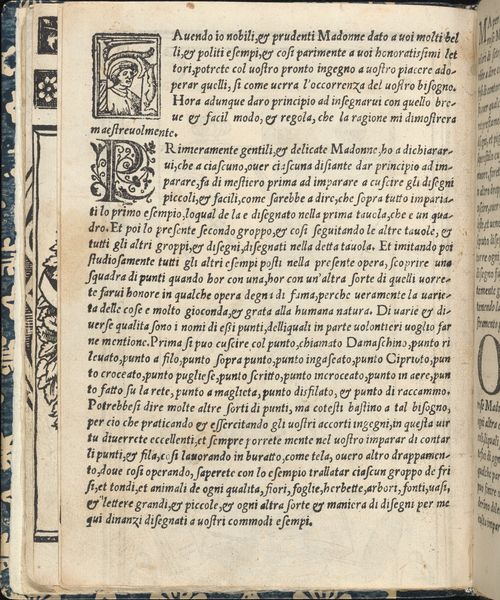 HAuendo io nobili,& prudenti Madonne dato a uoi molti bel
li,& politi esempi,& cosi parimente a uoi honoratissimi let
tori,potrete col uostro pronto ingegno a uostro piacere ado-
perar quelli,si come uerra l'occorrenza del uostro bisogno.
Hora adunque daro principio ad insegnarui con quello bre-
ue & facil modo,& regola,che la ragione mi dimostrera
maestreuolmente.
PRimeramente gentili,& delicate Madonne,ho a dichiarar-
ui,che a ciascuno,ouer ciascuna disiante dar principio ad im-
parare,fa di mestiero prima ad imparare a cuscire gli disegni
piccoli,& facili,come sarebbe a dire,che sopra tutto imparia-
ti lo primo esempio,loqual de la e disegnato nella prima tauola,che e un qua-
dro. Et poi lo presente secondo groppo,& cosi seguitando le altre tauole,&
tutti gli altri groppi,& disegni,disegnati nella detta tauola. Et imitando poi
studiosamente tutti gli altri esempi posti nella presente opera, scoprire una
squadra di punti quando hor con una,hor con un'altra sorte di quelli uorre-
te farui honore in qualche opera degna di fama,perche ueramente la uarie-
ta delle cose e molto gioconda,& grata alla humana natura. Di uarie & di-
uerse qualita sono i nomi di essi punti,delliquali in parte uolontieri uoglio far
ne mentione.Prima si puo cuscire col punto,chiamato Damaschino,punto ri
leuato,punto a filo,punto sopra punto,punto ingaseato,punto Cipriuto,pun
to croceato,punto pugliese,punto scritto,punto incroceato,punto in aere,pun
to fatto su la rete,punto a maglieta,punto disfilato,& punto di raccammo.
Potrebbesi dire molte altre sorti di punti, ma cotesti bastino a tal bisogno,
per cio che praticando & essercitando gli uostri accorti ingegni,in questa uir
tu diuerrete eccellenti,et sempre porrete mente nel uostro imparar di contar
li punti,& fila,cosi lauorando in buratto,come tela, ouero altro drappamen-
to,doue cosi operando, saperete con lo esempio trallatar ciascun groppo de fri
si,et tondi,et animali de ogni qualita,fiori,foglie,herbette,arbori,fonti,uasi,
& lettere grandi,& piccole,& ogni altra sorte & maniera di disegni per me
qui dinanzi disegnati a uostri commodi esempi.